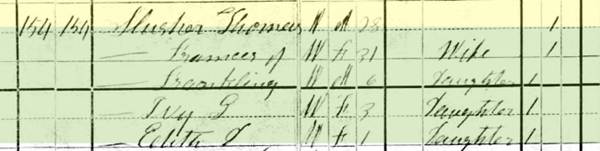 154 154 Slusher Thomas W M 28 1
— Frances A W F 31 Wife 1
— Frankling W M 6 Daughter 1
— Ivy G W F 3 Daughter 1
— Edith W F 1 Daughter 1